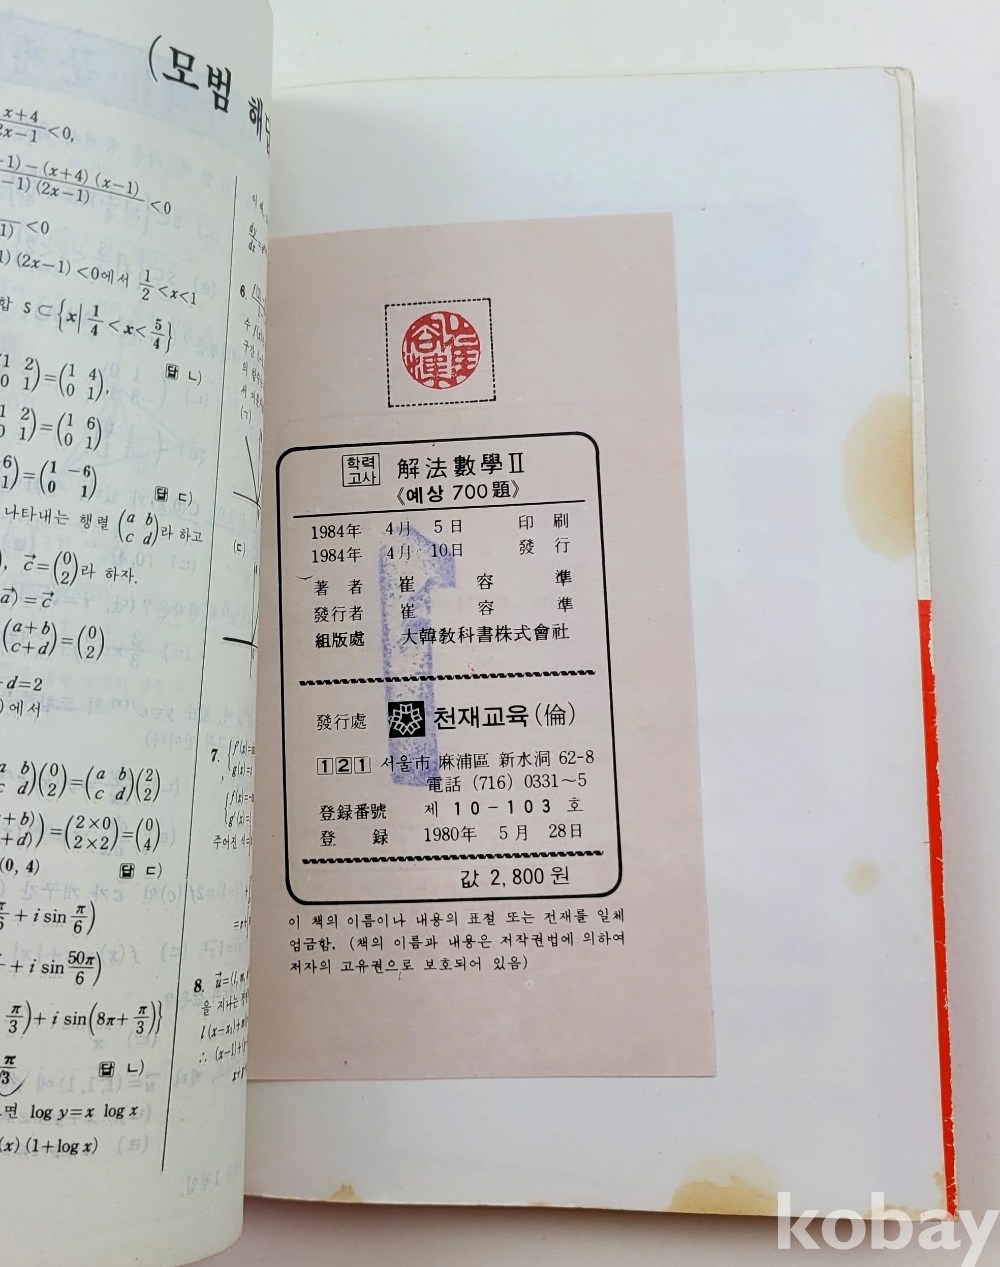 (모범 해답
x+4
2x-1 <0,
-1)-(x+4)(x-1)
-1)(2x-1) <0
1) <0
1)(2x-1)<0에서 1/2<x<1
합 S⊂{x|1/4<x<5/4}
답 ㄴ)
(1 2
0 1)=(1 4
0 1),
1 2
0 1)=(1 6
0 1)
-6
1)=(1 -6
0 1)
답 ㄷ)
나타내는 행렬 (a b
c d)라 하고
), c=(0
2)라 하자.
a)=c
(a+b
c+d)=(0
2)
+d=2
)에서
a b
c d)(0
2)=(a b
c d)(2
2)
+b)
+d))=(2×0
2×2)=(0
4)
(0, 4) 답 ㄷ)
π/6+i sin π/6)
+i sin 50π/6)
π/3)+i sin(8π+π/3)}
π/3 답 ㄴ)
면 log y=x log x
(x)(1+log x)
dy
dx
6.
(ㄱ)
(ㄷ)
7.
주어진 식
8. u=(l, m,
을 지나는
∴ (x-1)+
학력고사 解法數學Ⅱ
《예상 700題》
1984年 4月 5日 印刷
1984年 4月 10日 發行
著者 崔容準
發行者 崔容準
組版處 大韓敎科書株式會社
發行處 천재교육(倫)
121 서울市 麻浦區 新水洞 62-8
電話 (716) 0331~5
登録番號 제 10-103 호
登録 1980年 5月 28日
값 2,800원
이 책의 이름이나 내용의 표절 또는 전재를 일체
엄금함. (책의 이름과 내용은 저작권법에 의하여
저자의 고유권으로 보호되어 있음)
kobay